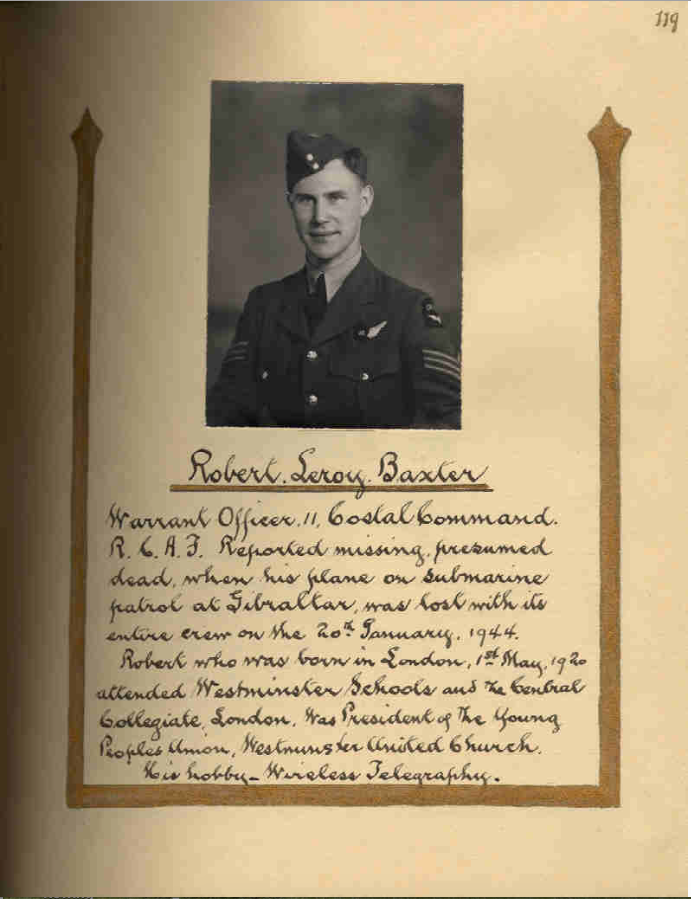 119
Robert. Leroy. Baxter
Warrant Officer. 11, Costal Command.
R. C. A. F. Reported missing, presumed
dead, when his plane on submarine
patrol at Gibraltar, was lost with its
entire crew on the 20th January, 1944.
Robert who was born in London, 1st May, 1920
attended Westminster Schools and the Central
Collegiate, London. Was President of the Young
Peoples Union, Westminster United Church.
His hobby - Wireless Telegraphy.